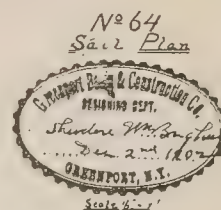 Nº 64
Sail Plan
Greenport Basin & Construction Co.
DESIGNING DEPT.
Theodore Wm.
Dec. 2nd 1902
GREENPORT, N.Y.
Scale